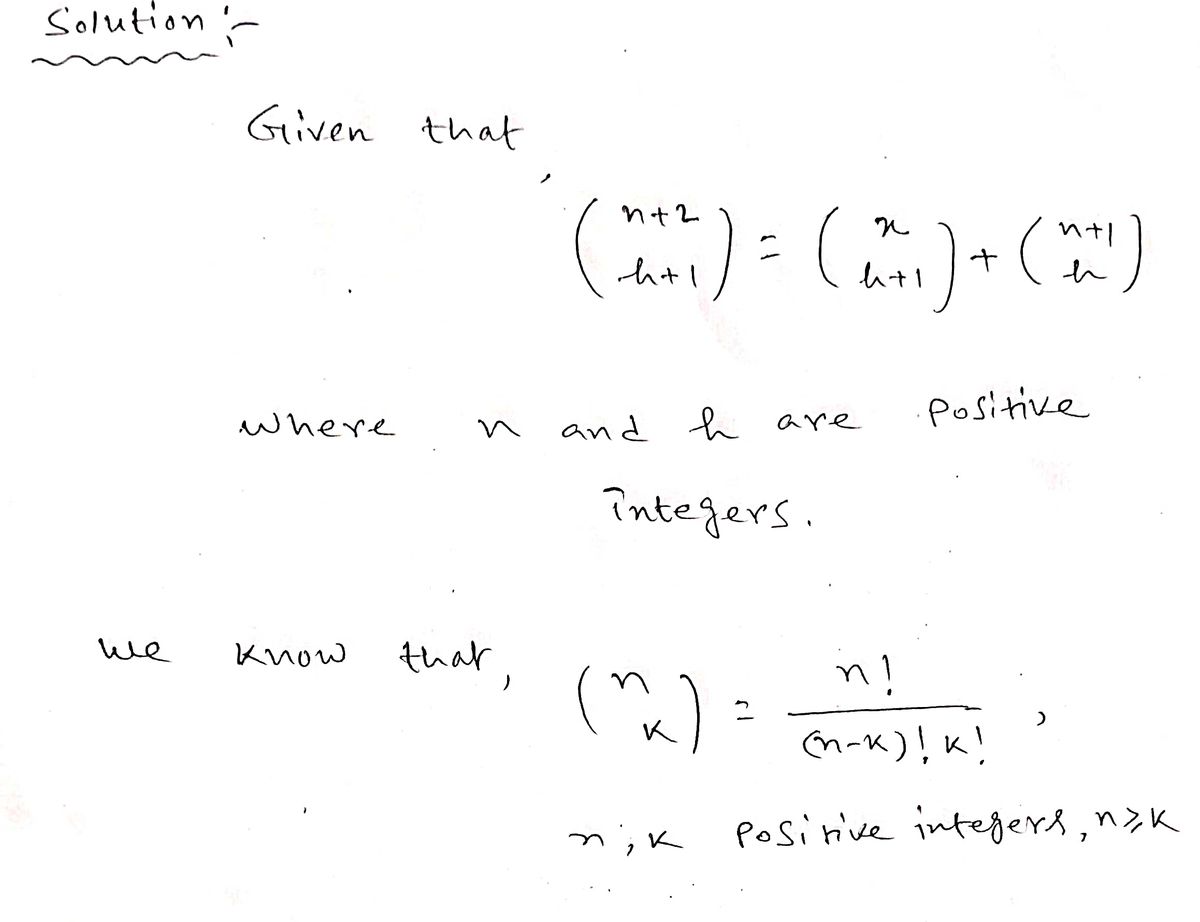 Solution :-
Given that,
(n+2 h+1) = (x h+1) + (n+1 h)
where n and h are positive
integers.
we know that, (n k) = n! / (n-k)! k! ,
n, k positive integers, n≥k